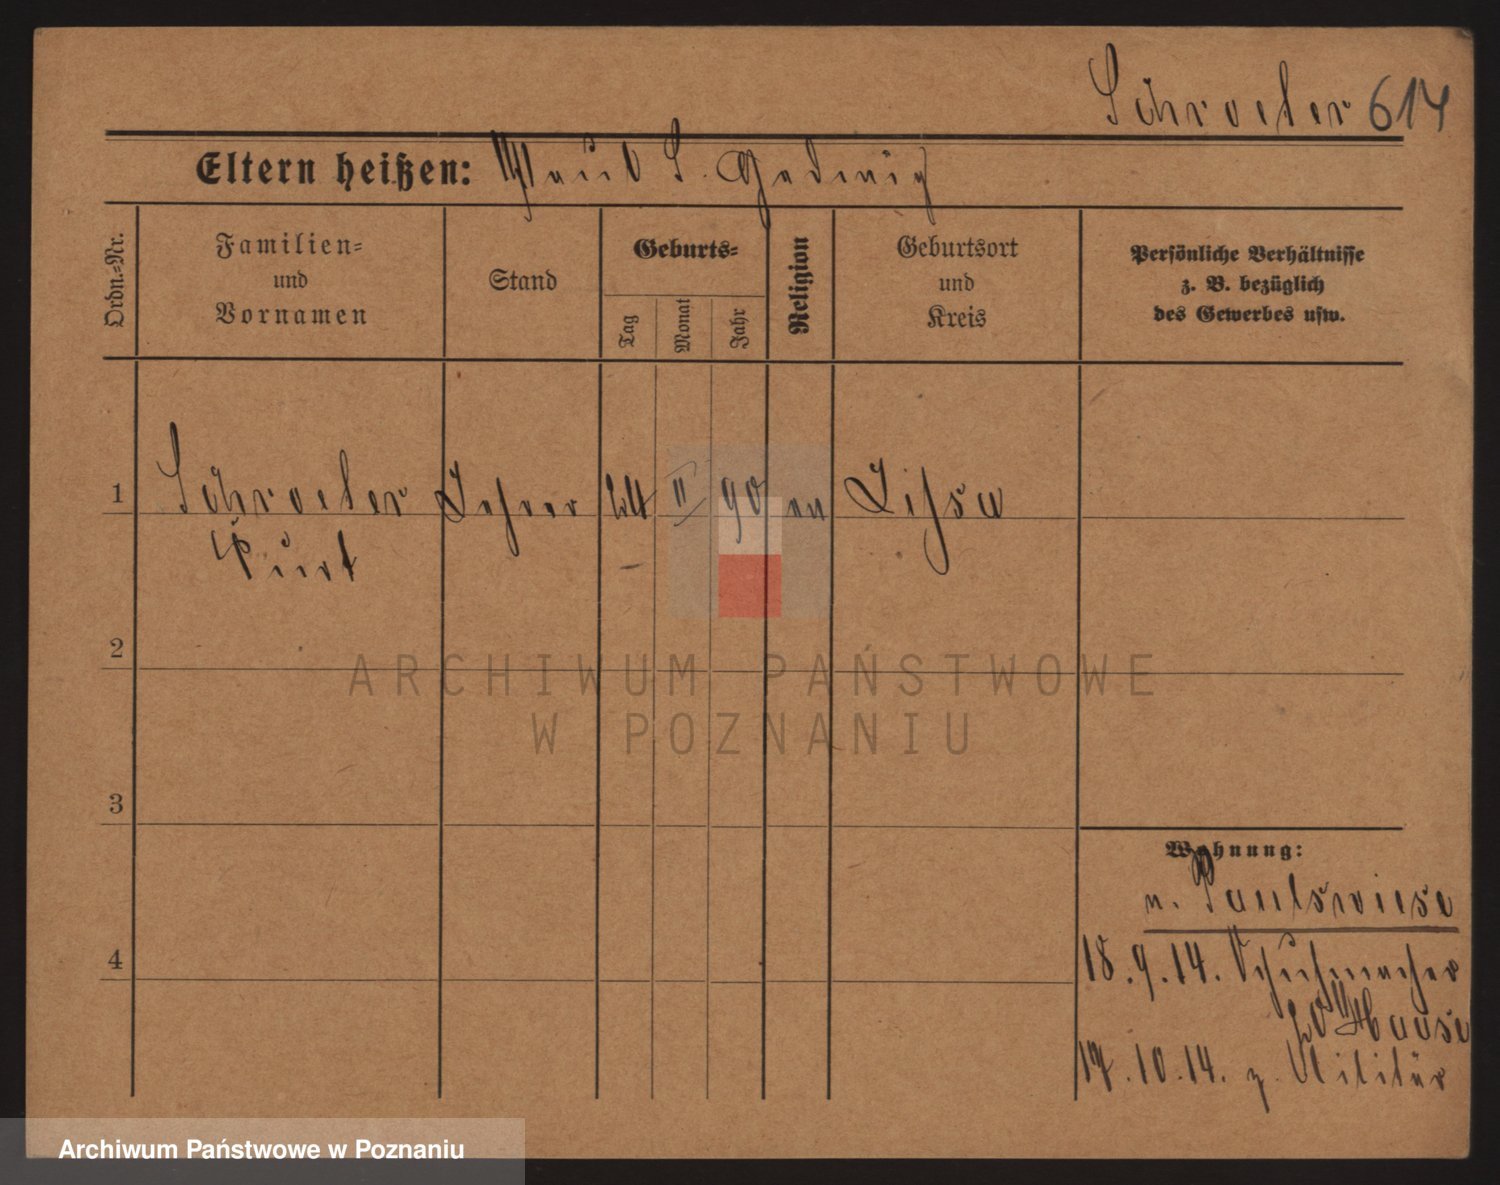 Schroeter 614
Eltern heißen: S. Hedwig
Ordn.=Nr.
Familien=
und
Vornamen
Stand
Geburts=
Tag
Monat
Jahr
Religion
Geburtsort
und
Kreis
Persönliche Verhältnisse
z. B. bezüglich
des Gewerbes usw.
1
Schroeter
Lehrer
24
II
90
ev
Lissa
Kurt
2
3
4
Wohnung:
n. Paulswiese
18.9.14. Schuhmacher
Haase
14.10.14. z. Militär
ARCHIWUM PAŃSTWOWE
W POZNANIU
Archiwum Państwowe w Poznaniu